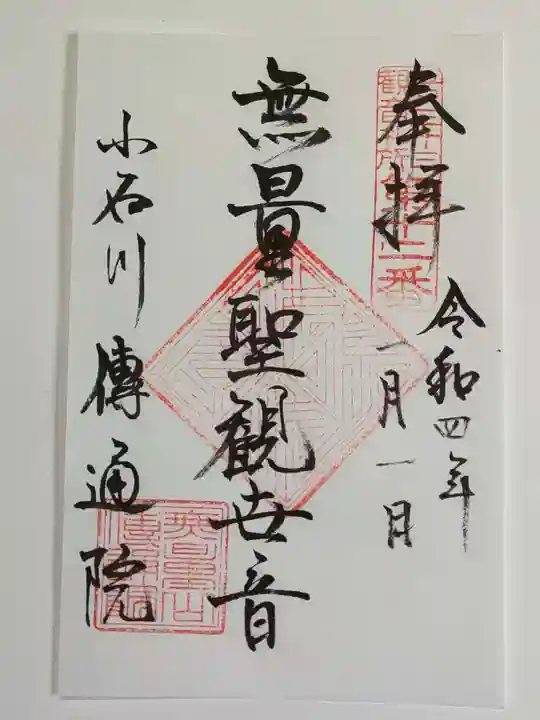 奉拝
令和四年
一月一日
無量聖観世音
小石川傳通院